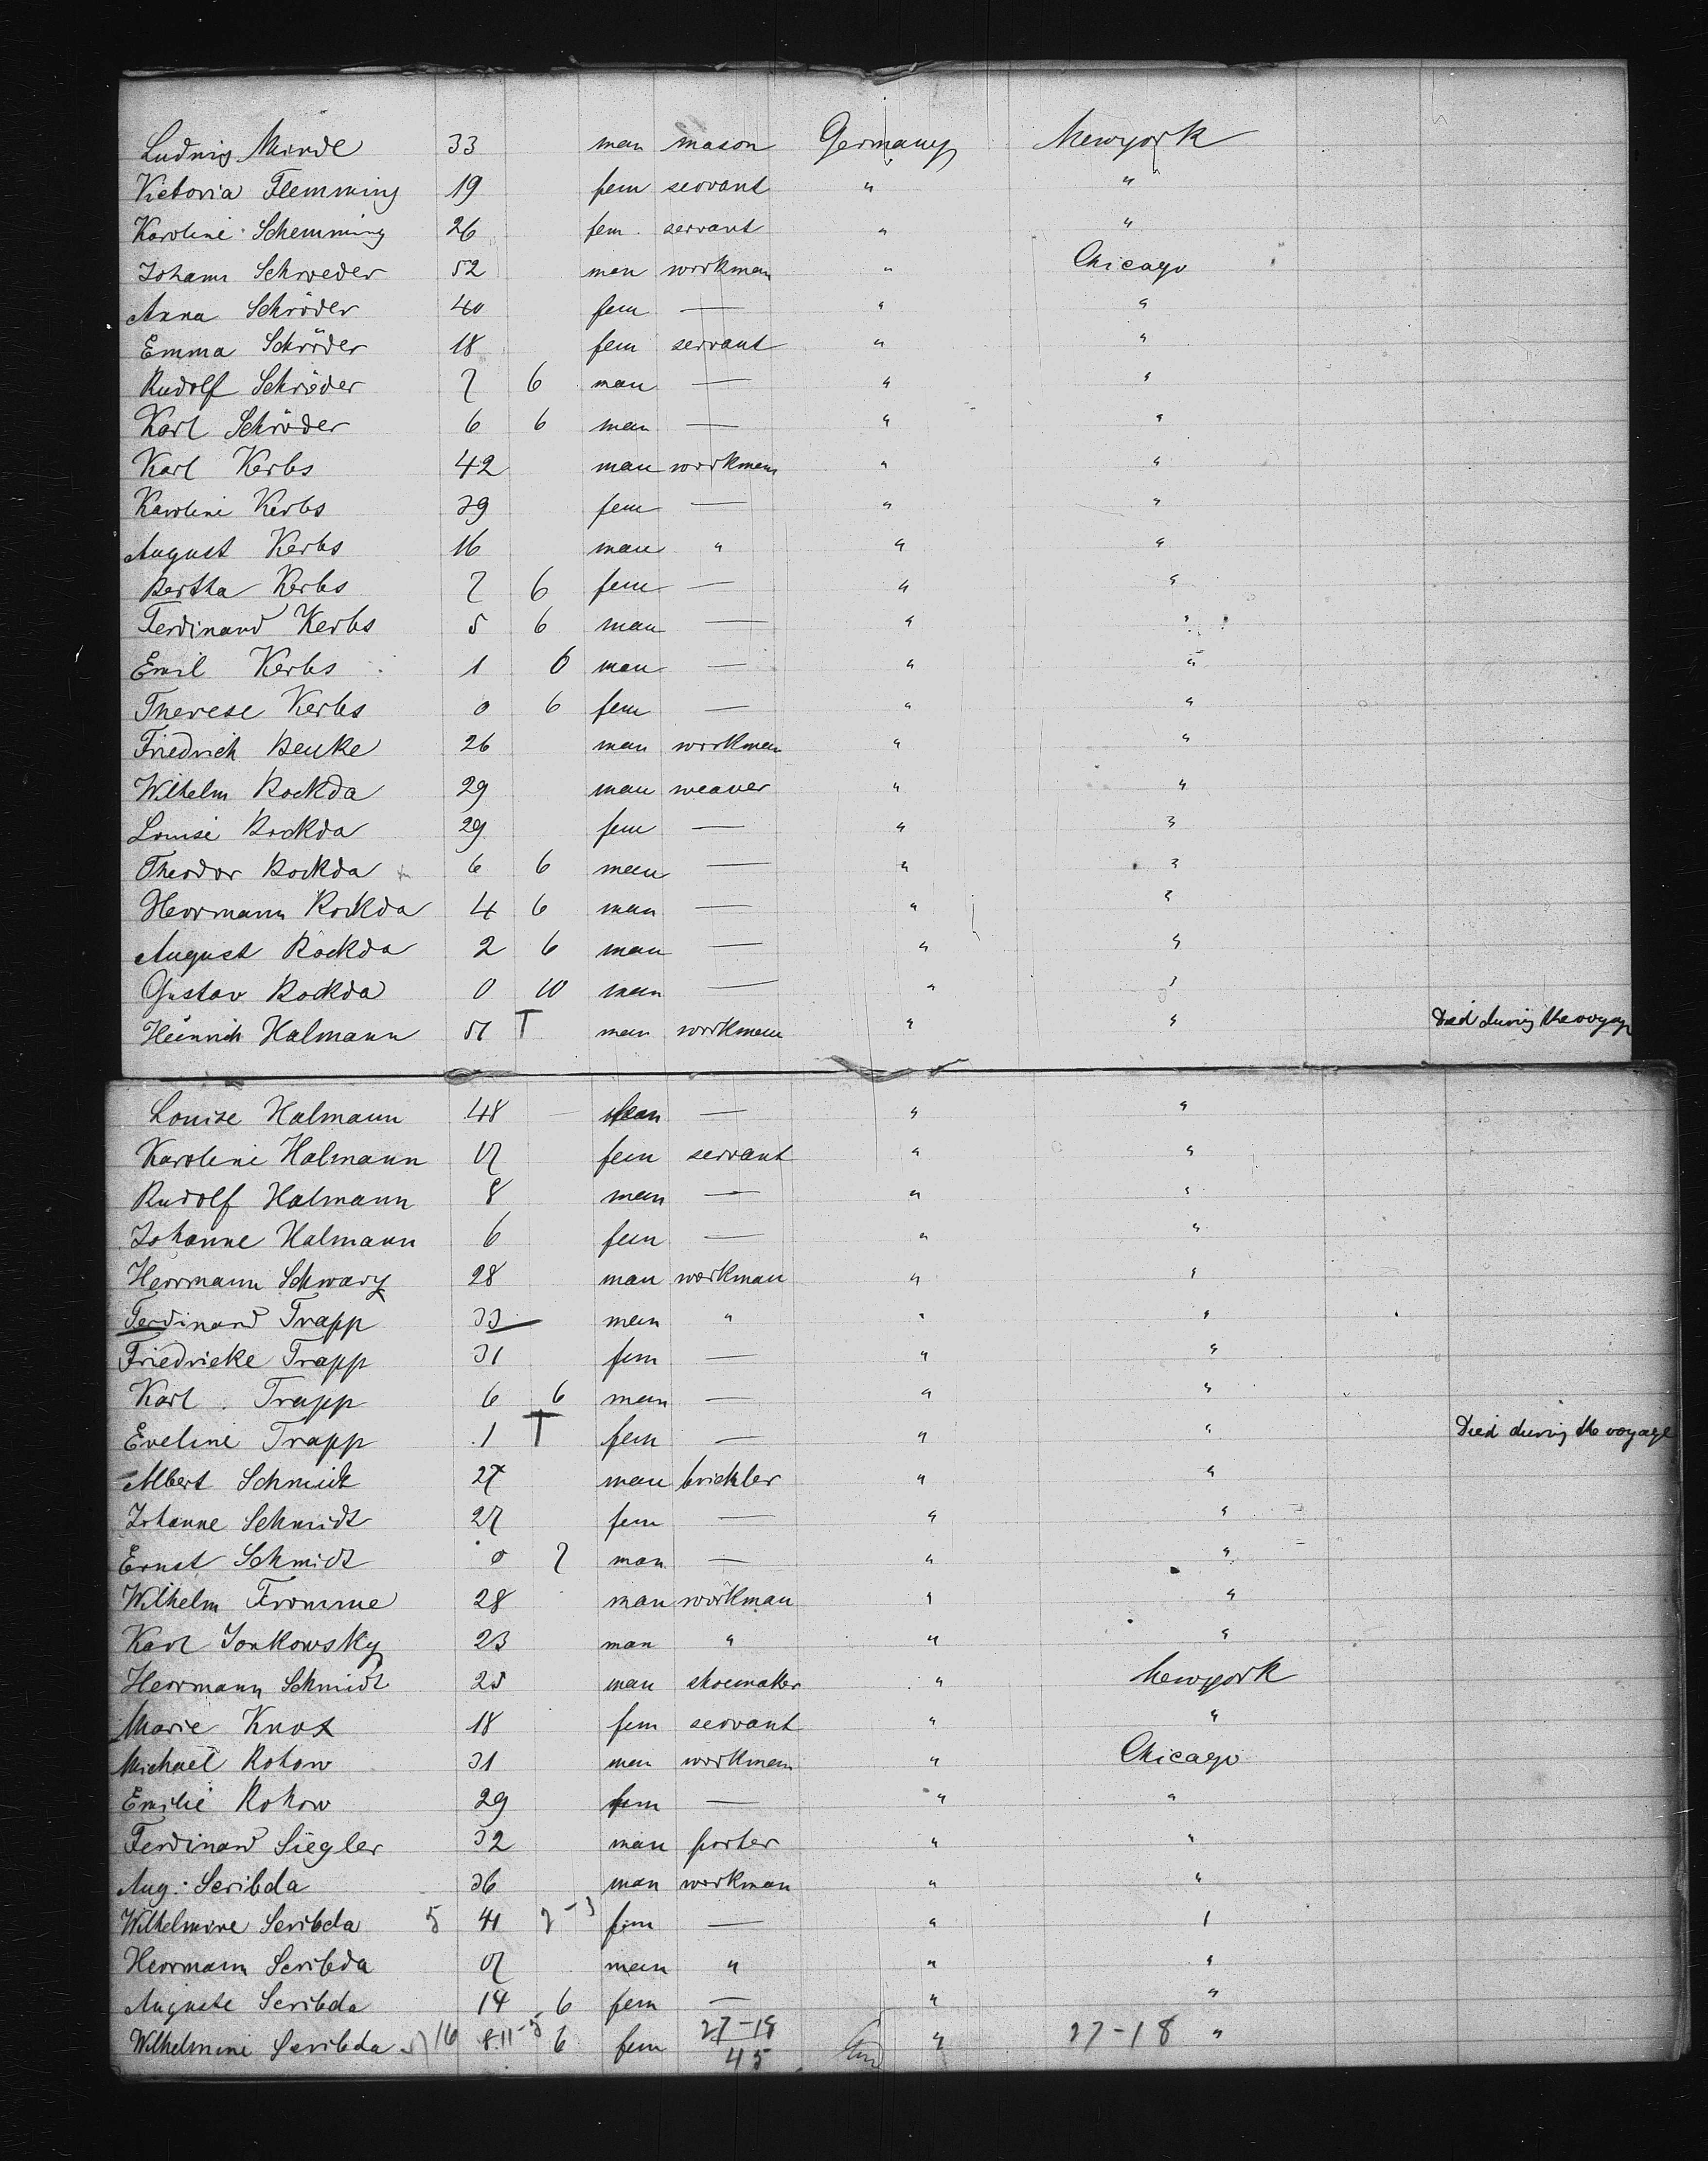 Ludwig Minde 33 man mason Germany Newyork
Victoria Flemming 19 fem servant " "
Karoline Schemming 26 fem. servant " "
Johann Schroeder 52 man workman " Chicago
Anna Schröder 40 fem — " "
Emma Schröder 18 fem servant " "
Rudolf Schröder 7 6 man — " "
Karl Schröder 6 6 man — " "
Karl Kerbs 42 man workman " "
Karoline Kerbs 39 fem — " "
August Kerbs 16 man " " "
Bertha Kerbs 7 6 fem — " "
Ferdinand Kerbs 5 6 man — " "
Emil Kerbs 1 6 man — " "
Therese Kerbs 0 6 fem — " "
Friedrich Benke 26 man workman " "
Wilhelm Bockda 29 man weaver " "
Louise Bockda 29 fem — " "
Theodor Bockda 6 6 man — " "
Herrmann Bockda 4 6 man — " "
August Bockda 2 6 man — " "
Gustav Bockda 0 10 man — " "
Heinrich Halmann 51 T man workman " " Died during the voyage
Louise Halmann 48 — " "
Karoline Halmann 17 fem servant " "
Rudolf Halmann 8 man — " "
Johanne Halmann 6 fem — " "
Herrmann Schwarz 28 man workman " "
Ferdinand Trapp 33 man " " "
Friedrieke Trapp 31 fem — " "
Karl Trapp 6 6 man — " "
Eveline Trapp 1 T fem — " " Died during the voyage
Albert Schmidt 27 man brickler " "
Johanne Schmidt 27 fem — " "
Ernst Schmidt 0 7 man — " "
Wilhelm Fromme 28 man workman " "
Karl Jonkowsky 23 man " " "
Herrmann Schmidt 25 man shoemaker " Newyork
Marie Knox 18 fem servant " "
Michael Rohow 31 man workman " Chicago
Emilie Rohow 29 fem — " "
Ferdinand Siegler 32 man porter " "
Aug: Scribda 36 man workman " "
Wilhelmine Scribda 5 41 fem — " "
Herrmann Scribda 17 man " " "
Auguste Scribda 14 6 fem — " "
Wilhelmine Scribda 16 8.11-5 6 fem 27-18 " 27-18 "
45